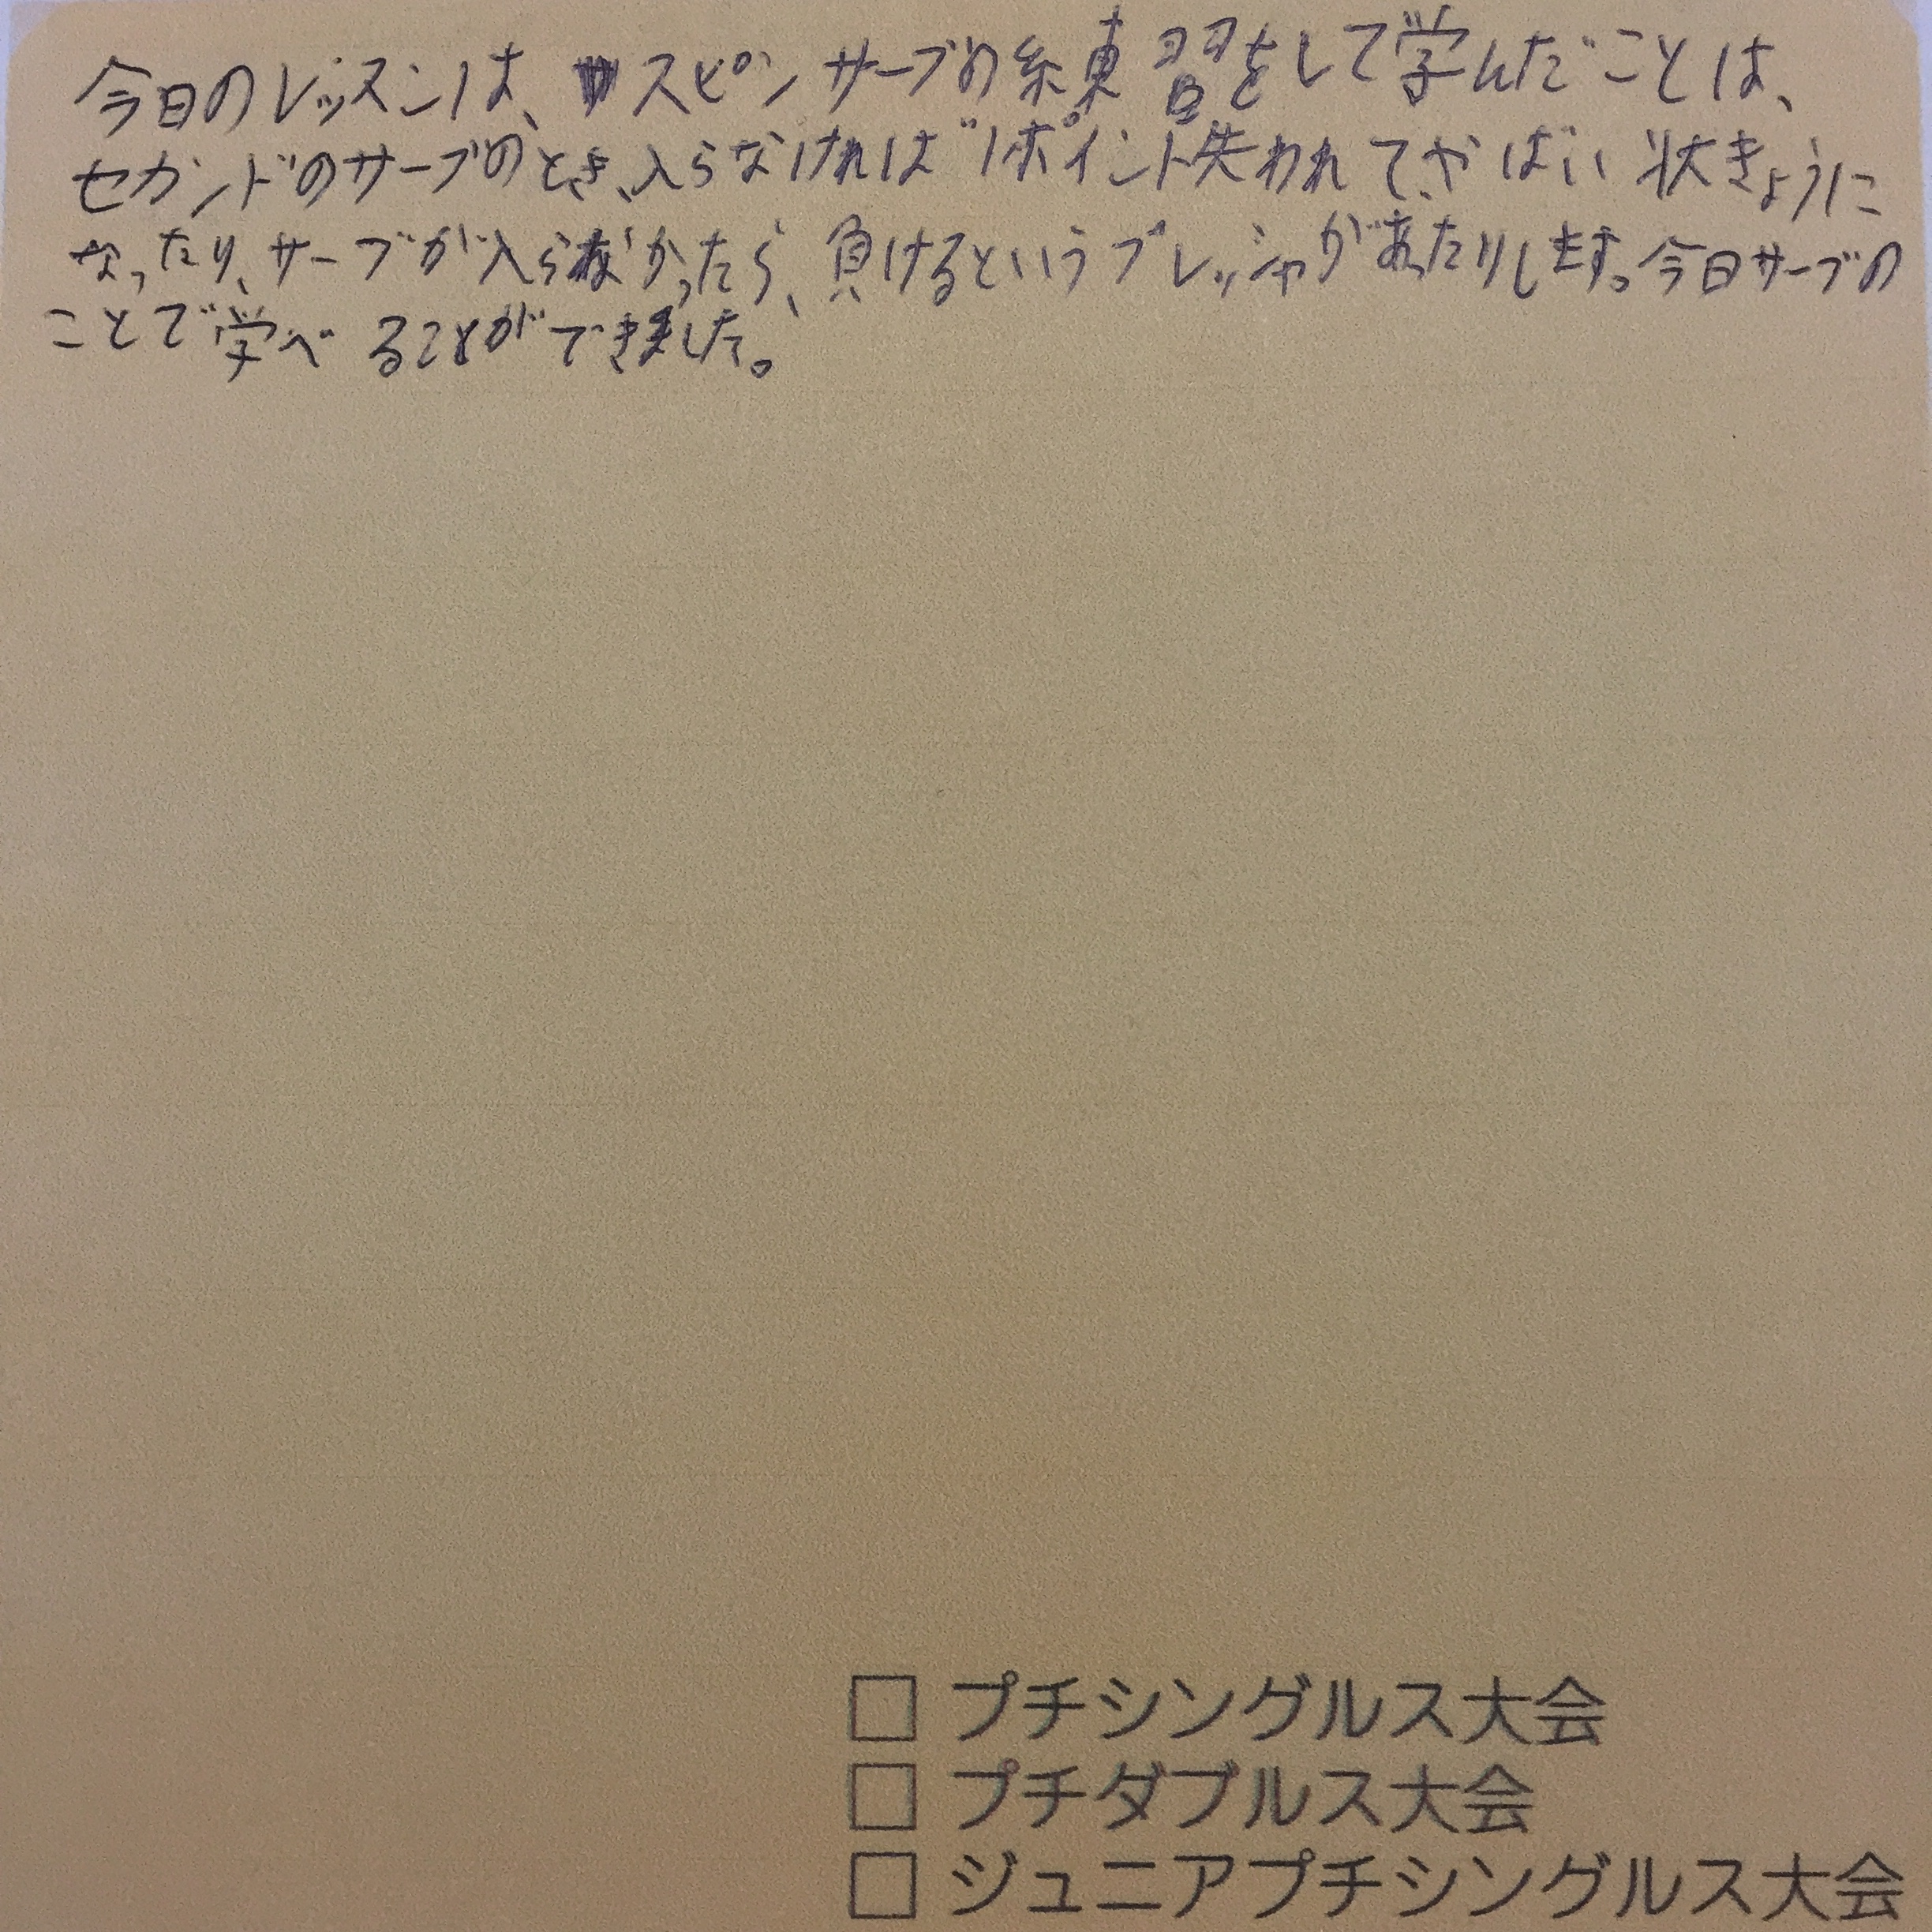 今日のレッスンは、スピンサーブの練習をして学んだことは、
セカンドのサーブのとき、入らなければ1ポイント失われて、やばい状きょうに
なったり、サーブが入らなかったら、負けるというプレッシャがあったりします。今日サーブの
ことで学べることができました。
□ プチシングルス大会
□ プチダブルス大会
□ ジュニアプチシングルス大会